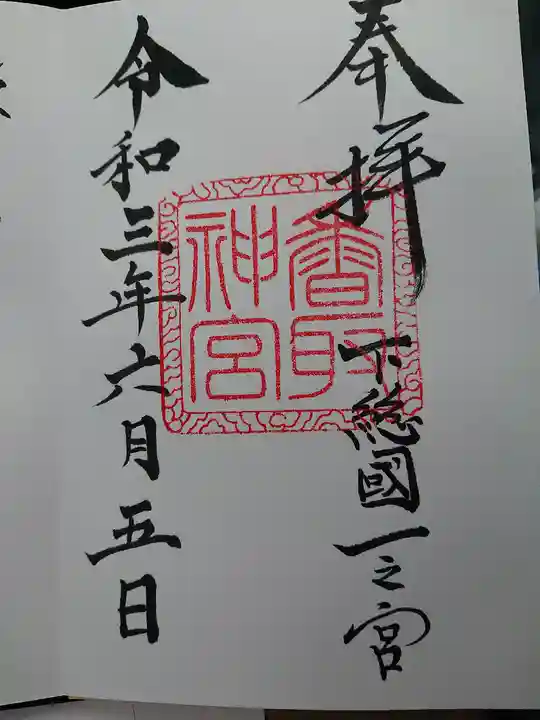 奉拝
下総國一之宮
香取
神宮
令和三年六月五日